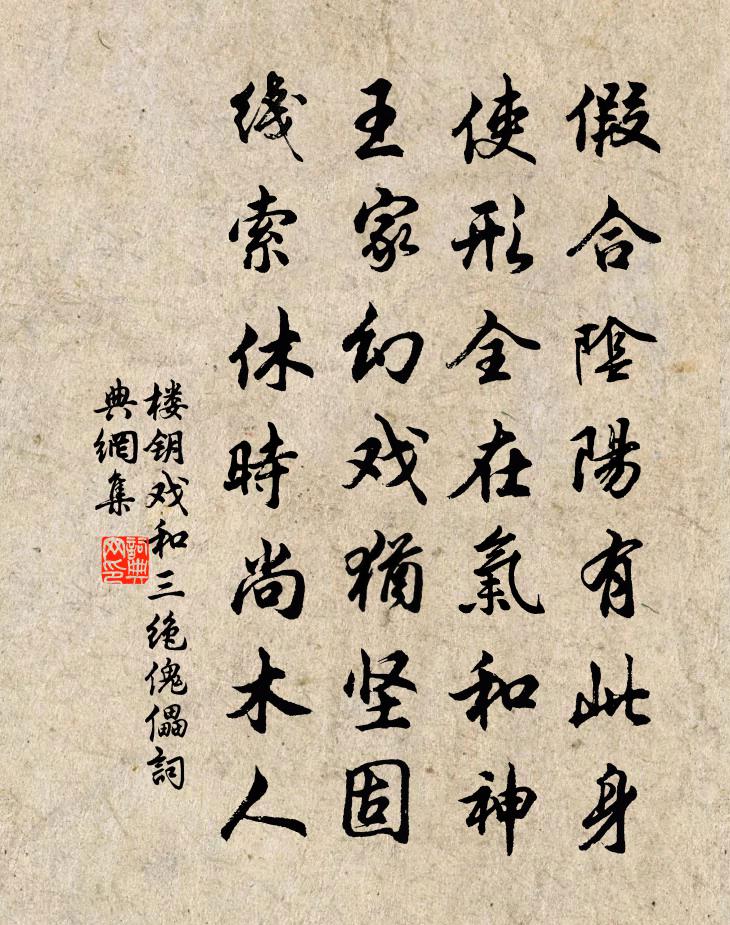 假合陰陽有此身
使形全在氣和神
王家幻戏猶坚固
线索休時尚木人
楼钥戏和三绝傀儡詞
典網集
詞典
网印